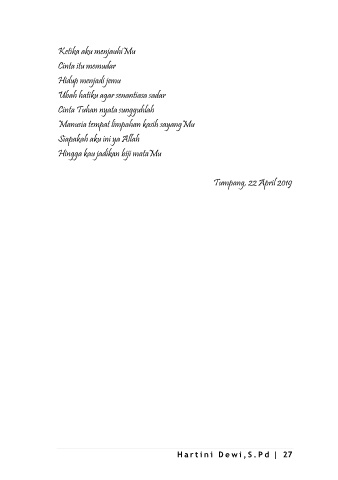 Ketika aku menjauhi Mu
Cinta itu memudar
Hidup menjadi jemu
Ubah hatiku agar senantiasa sadar
Cinta Tuhan nyata sungguhlah
Manusia tempat limpahan kasih sayang Mu
Siapakah aku ini ya Allah
Hingga kau jadikan biji mata Mu
Tumpang, 22 April 2019
Hartini Dewi,S.Pd | 27